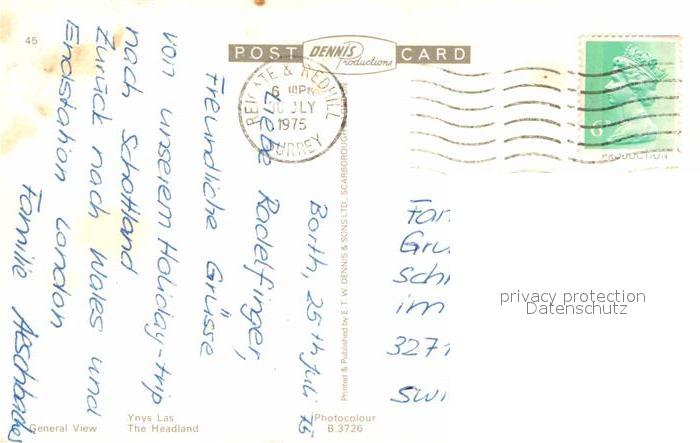 45
POST DENNIS Productions CARD
REIGATE & REDHILL
6
JLY
1975
SURREY
6P
PRODUCTION
Borth, 25th Juli 75
Liebe Rodelfinger,
Freundliche Grüsse
von unserem Holiday-trip
nach Schottland
Zurück nach Wales und
Endstation London
Familie Aeschbacher
Printed & Published by E.T.W. DENNIS & SONS LTD., SCARBOROUGH
Fam
Gru
Sch
im
327
SWI
privacy protection
Datenschutz
General View
Ynys Las
The Headland
Photocolour
B.3726